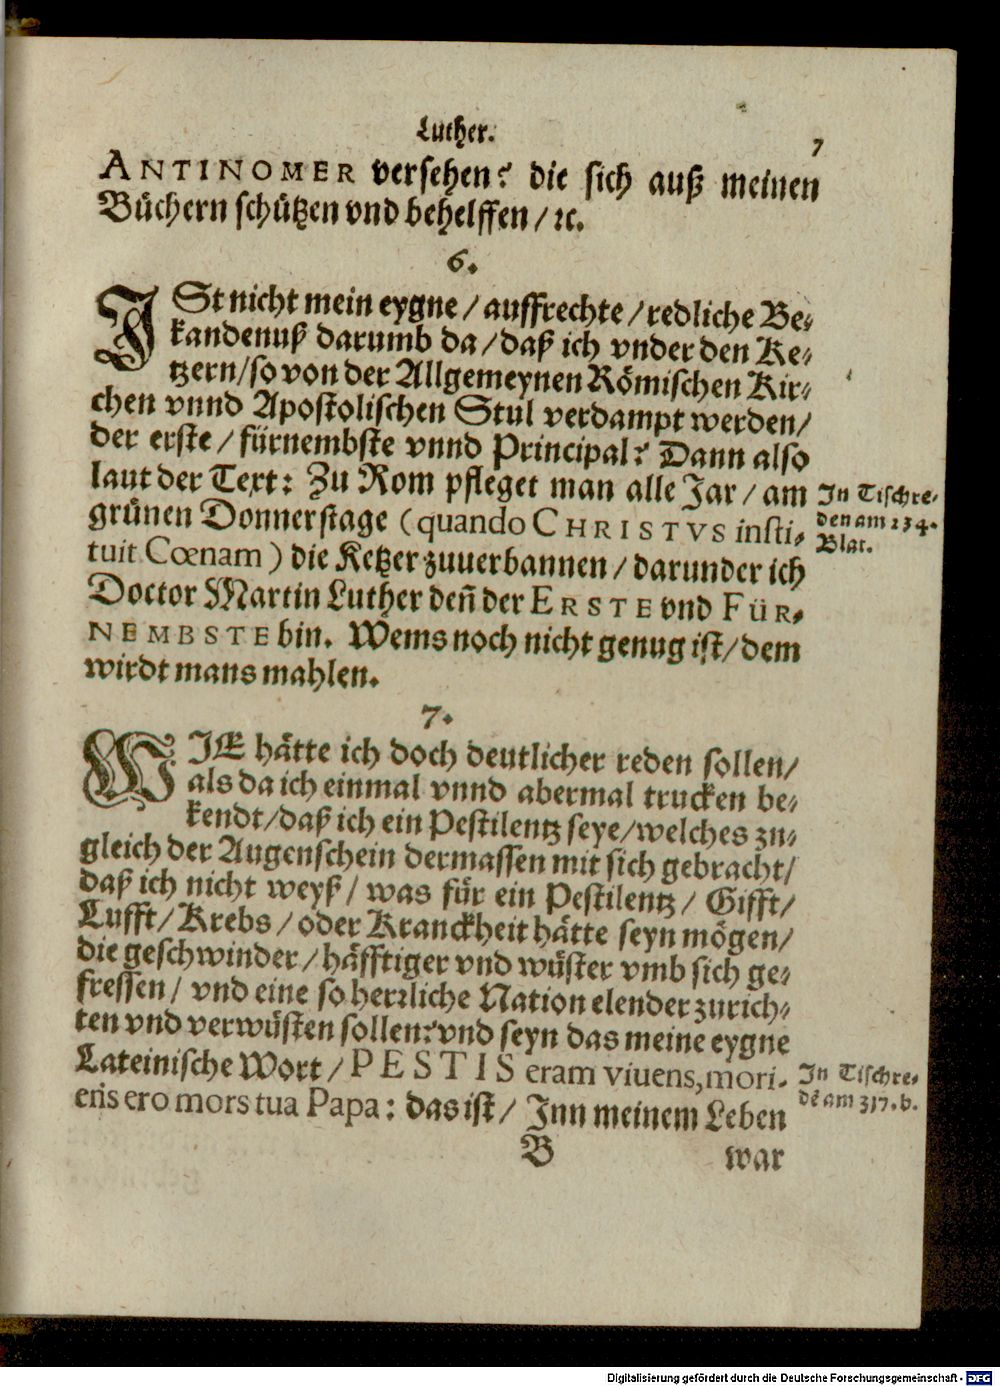 Luther.
7
ANTINOMER versehen? die sich auß meinen
Büchern schützen vnd behelffen / ꝛc.
6.
ISt nicht mein eygne / auffrechte / redliche Be⸗
kandenuß darumb da / daß ich vnder den Ke⸗
tzern / so von der Allgemeynen Römischen Kir⸗
chen vnnd Apostolischen Stul verdampt werden /
der erste / fürnembste vnnd Principal? Dann also
laut der Text: Zu Rom pfleget man alle Jar / am
grünen Donnerstage (quando CHRISTVS insti⸗
tuit Cœnam) die Ketzer zuuerbannen / darunder ich
Doctor Martin Luther deñ der ERSTE vnd FÜR⸗
NEMBSTE bin. Wems noch nicht genug ist / dem
wirdt mans mahlen.
In Tischre⸗
den am 234.
Blat.
7.
WIE hätte ich doch deutlicher reden sollen /
als da ich einmal vnnd abermal trucken be⸗
kendt / daß ich ein Pestilentz seye / welches zu⸗
gleich der Augenschein dermassen mit sich gebracht /
daß ich nicht weyß / was für ein Pestilentz / Gifft /
Lufft / Krebs / oder Kranckheit hätte seyn mögen /
die geschwinder / häfftiger vnd wüster vmb sich ge⸗
fressen / vnd eine so herꝛliche Nation elender zurich⸗
ten vnd verwüsten sollen? vnd seyn das meine eygne
Lateinische Wort / PESTIS eram viuens, mori⸗
ens ero mors tua Papa: das ist / Inn meinem Leben
In Tischre⸗
dē am 317. b.
B
war
Digitalisierung gefördert durch die Deutsche Forschungsgemeinschaft - DFG